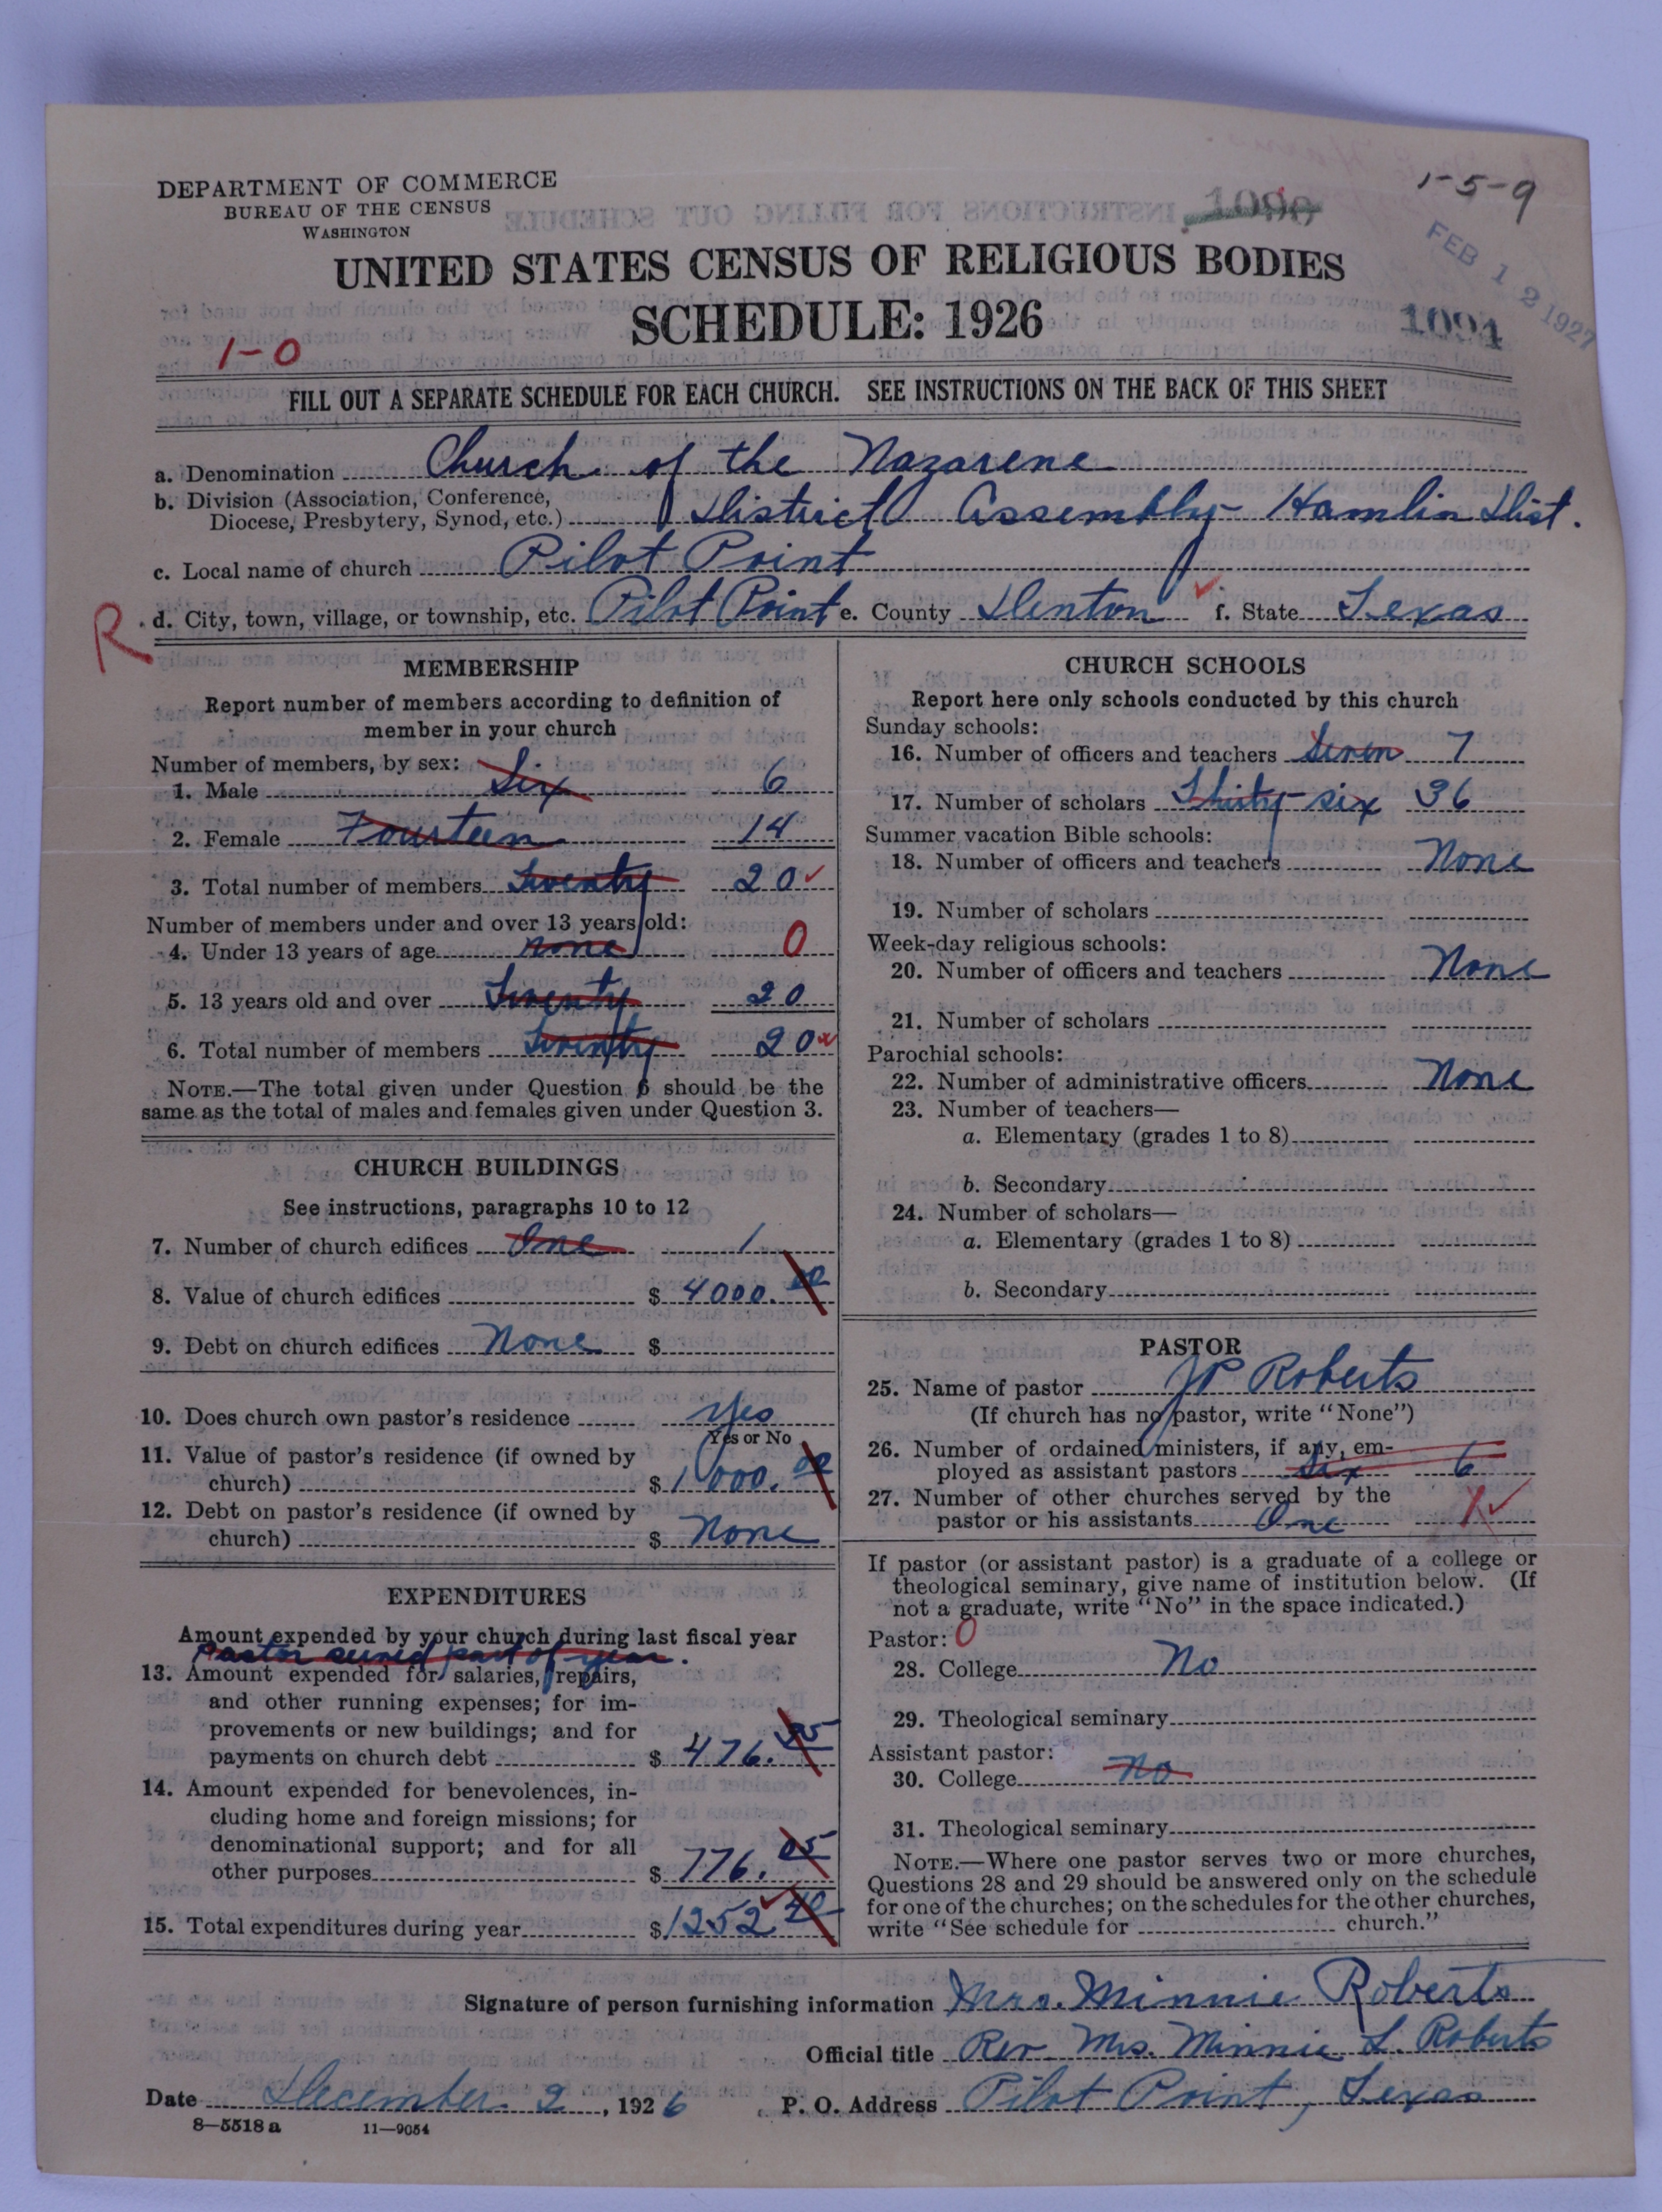 DEPARTMENT OF COMMERCE
BUREAU OF THE CENSUS
WASHINGTON
1-5-9
1090
FEB 12 1927
UNITED STATES CENSUS OF RELIGIOUS BODIES
SCHEDULE: 1926
1091
1-0
FILL OUT A SEPARATE SCHEDULE FOR EACH CHURCH. SEE INSTRUCTIONS ON THE BACK OF THIS SHEET
a. Denomination Church of the Nazarene
b. Division (Association, Conference,
Diocese, Presbytery, Synod, etc.) District Assembly Hamlin Dist.
c. Local name of church Pilot Point
R
d. City, town, village, or township, etc. Pilot Point e. County Denton f. State Texas
MEMBERSHIP
Report number of members according to definition of
member in your church
Number of members, by sex:
1. Male Six 6
2. Female Fourteen 14
3. Total number of members Twenty 20
Number of members under and over 13 years old:
4. Under 13 years of age none 0
5. 13 years old and over Twenty 20
6. Total number of members Twenty 20
NOTE.—The total given under Question 6 should be the
same as the total of males and females given under Question 3.
CHURCH BUILDINGS
See instructions, paragraphs 10 to 12
7. Number of church edifices One 1
8. Value of church edifices $ 4000.00
9. Debt on church edifices None $
10. Does church own pastor's residence Yes
Yes or No
11. Value of pastor's residence (if owned by
church) $ 1000.00
12. Debt on pastor's residence (if owned by
church) $ None
EXPENDITURES
Amount expended by your church during last fiscal year
Pastor served part of year.
13. Amount expended for salaries, repairs,
and other running expenses; for im-
provements or new buildings; and for
payments on church debt $ 476.35
14. Amount expended for benevolences, in-
cluding home and foreign missions; for
denominational support; and for all
other purposes $ 776.05
15. Total expenditures during year $ 1252 40
CHURCH SCHOOLS
Report here only schools conducted by this church
Sunday schools:
16. Number of officers and teachers Seven 7
17. Number of scholars Thirty-six 36
Summer vacation Bible schools:
18. Number of officers and teachers None
19. Number of scholars
Week-day religious schools:
20. Number of officers and teachers None
21. Number of scholars
Parochial schools:
22. Number of administrative officers None
23. Number of teachers—
a. Elementary (grades 1 to 8)
b. Secondary
24. Number of scholars—
a. Elementary (grades 1 to 8)
b. Secondary
PASTOR
25. Name of pastor JP Roberts
(If church has no pastor, write "None")
26. Number of ordained ministers, if any, em-
ployed as assistant pastors Six 6
27. Number of other churches served by the
pastor or his assistants One 1
If pastor (or assistant pastor) is a graduate of a college or
theological seminary, give name of institution below. (If
not a graduate, write "No" in the space indicated.)
Pastor: 0
28. College No
29. Theological seminary
Assistant pastor:
30. College No
31. Theological seminary
NOTE.—Where one pastor serves two or more churches,
Questions 28 and 29 should be answered only on the schedule
for one of the churches; on the schedules for the other churches,
write "See schedule for church."
Signature of person furnishing information Mrs. Minnie Roberts
Official title Rev. Mrs. Minnie L. Roberts
Date December 2, 1926 P. O. Address Pilot Point, Texas
8—5518 a 11—9054